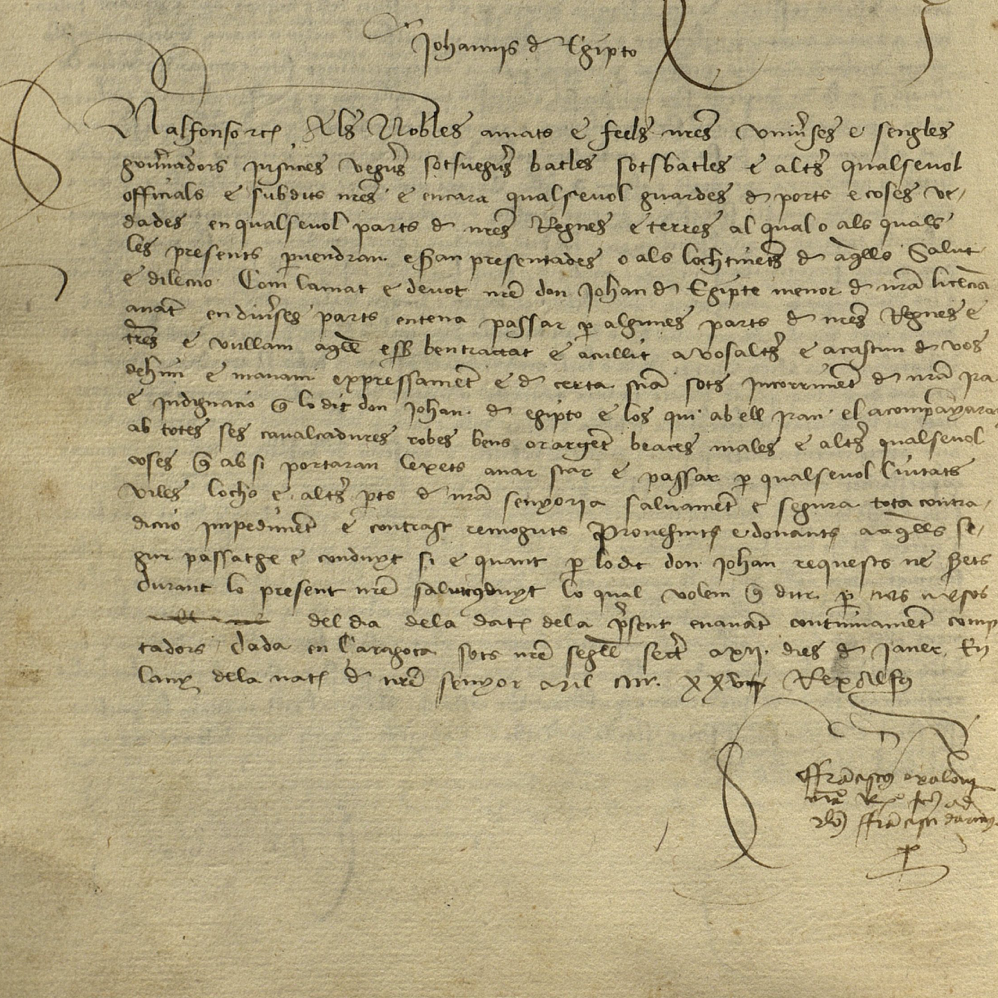 Johannis de Egipto
Nalfonso etc. Als Nobles amats e feels nres universes e sengles
governadors justicies veguers sotsveguers batles sotsbatles e altres qualsevol
officials e subdits nres e encara qualsevol guardes de ports e coses ve-
dades en qualsevol parts de nres Regnes e terres al qual o als quals
les presents pervendran e seran presentades o als lochtinents de aquells Salut
e dileccio. Com lamat e devot nre don Johan de Egipte menor de nra licencia
anant en diverses parts entena passar per algunes parts de nres Regnes e
terres e vullam aquell esser ben tractat e acullit a vosaltres e a cascun de vos
dehim e manam expressament e de certa sciencia sots incorriment de nra ira
e indignacio que lo dit don Johan de Egipto e los qui ab ell iran e lacompanyaran
ab totes ses cavalcadures robes bens or argent beaces males e altres qualsevol
coses que ab si portaran lexets anar star e passar per qualsevol Ciutats
viles lochs e altres parts de nra senyoria salvament e segura tota contra-
diccio impediment e contrast remoguts Provehints e donants a aquells se-
gur passatge e conduyt si e quant per lo dit don Johan requests ne serets
durant lo present nre salvconduyt lo qual volem que dur per tres mesos
del dia dela data dela present enavant continuament comp-
tadors. Dada en Caragoça sots nre segell secret a xii dies de janer En
lany dela nat de nre senyor Mil CCCC XXV Rex Alfonsus
Franciscus